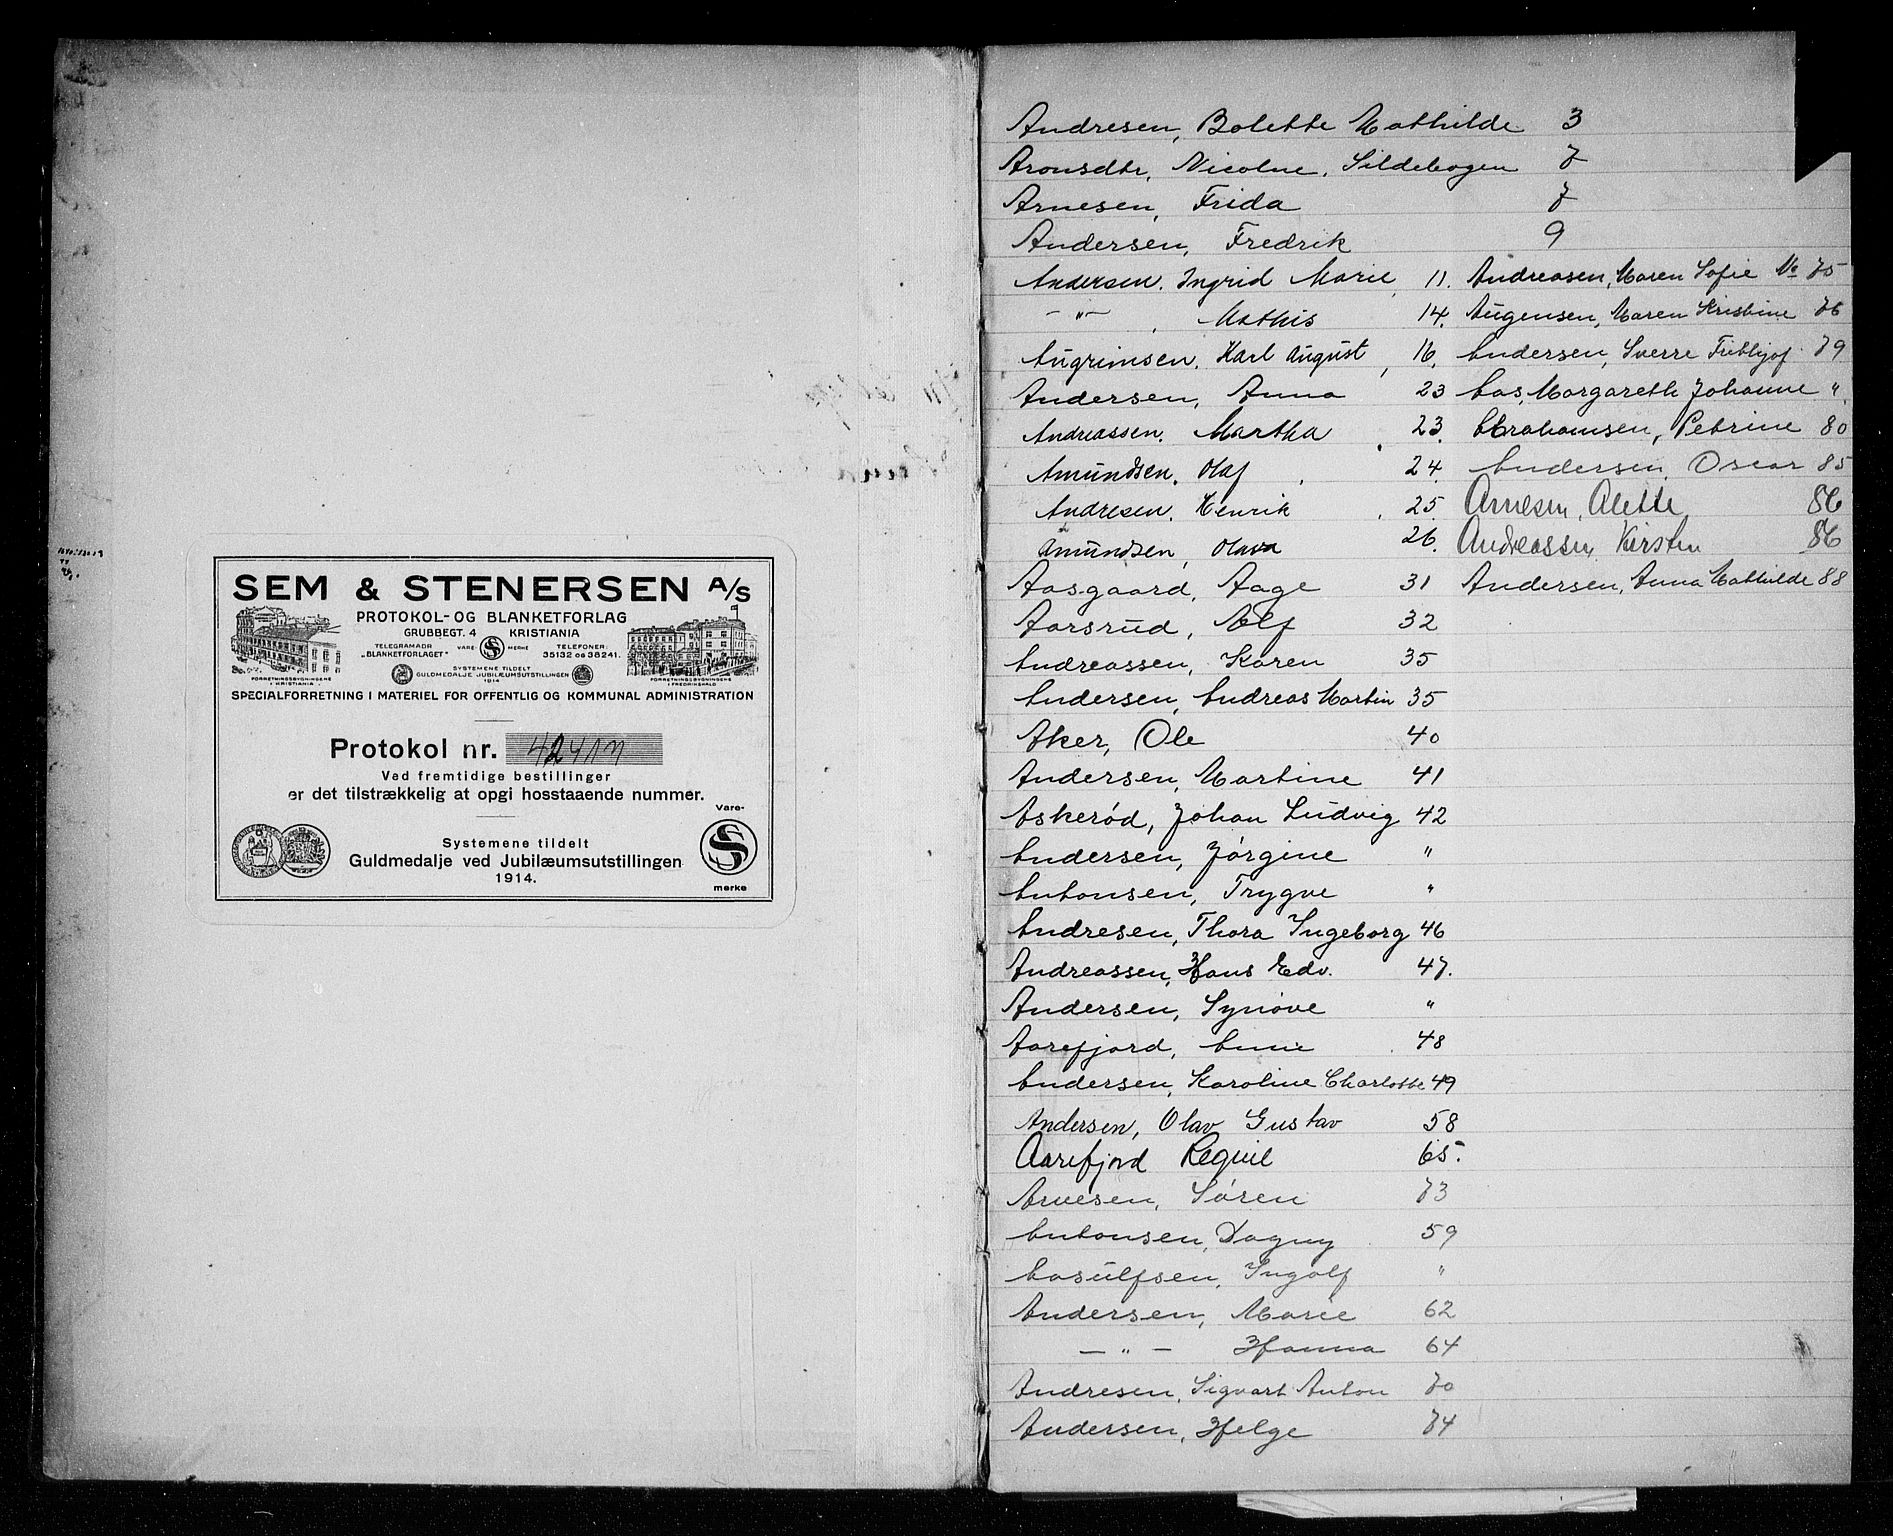 SEM & STENERSEN A/S
PROTOKOL- OG BLANKETFORLAG
GRUBBEGT. 4 KRISTIANIA
TELEGRAMADR „BLANKETFORLAGET" VARE- S MERKE TELEFONER 35132 og 38241.
SYSTEMENE TILDELT
GULDMEDALJE JUBILÆUMSUTSTILLINGEN
1914
FORRETNINGSBYGNINGENE I KRISTIANIA
FORRETNINGSBYGNINGENE I FREDRIKSHALD
SPECIALFORRETNING I MATERIEL FOR OFFENTLIG OG KOMMUNAL ADMINISTRATION
Protokol nr.
Ved fremtidige bestillinger
er det tilstrækkelig at opgi hosstaaende nummer.
Systemene tildelt
Guldmedalje ved Jubilæumsutstillingen
1914.
Vare-
S
merke
Andresen, Bolette Mathilde 3
Aronsdtr, Nicoline, Sildebogen 7
Arnesen, Frida 7
Andersen, Fredrik 9
Andersen, Ingrid Marie, 11. Andreasen, Maren Sofie No 75
— " — , Mathis 14. Augensen, Maren Kristine 76
Augrimsen, Karl August, 16. Andersen, Sverre Fritljof 79
Andersen, Anna 23 Aas, Margareth Johanne "
Andreassen, Martha 23. Abrahamsen, Petrine 80
Amundsen, Olaf 24. Andersen, Oscar 85
Andresen, Henrik 25. Arnesen, Alette 86
Amundsen, Olava 26. Andreassen, Kirsten 86
Aasgaard, Aage 31 Andersen, Anna Mathilde 88
Aarsrud, Alf 32
Andreassen, Karen 35
Andersen, Andreas Martin 35
Aker, Ole 40
Andersen, Martine 41
Askerød, Johan Ludvig 42
Andersen, Jørgine "
Antonsen, Trygve "
Andresen, Thora Ingeborg 46
Andreassen, Hans Edv. 47.
Andersen, Synøve "
Aarefjord, Anne 48
Andersen, Karoline Charlotte 49
Andersen, Olav Gustav 58
Aarefjord 65.
Arvesen, Søren 73
Antonsen, Dagny 59
Aasulfsen, Ingolf "
Andersen, Marie 62
— " — Hanna 64
Andresen, Sigvart Anton 70
Andersen, Helge 74